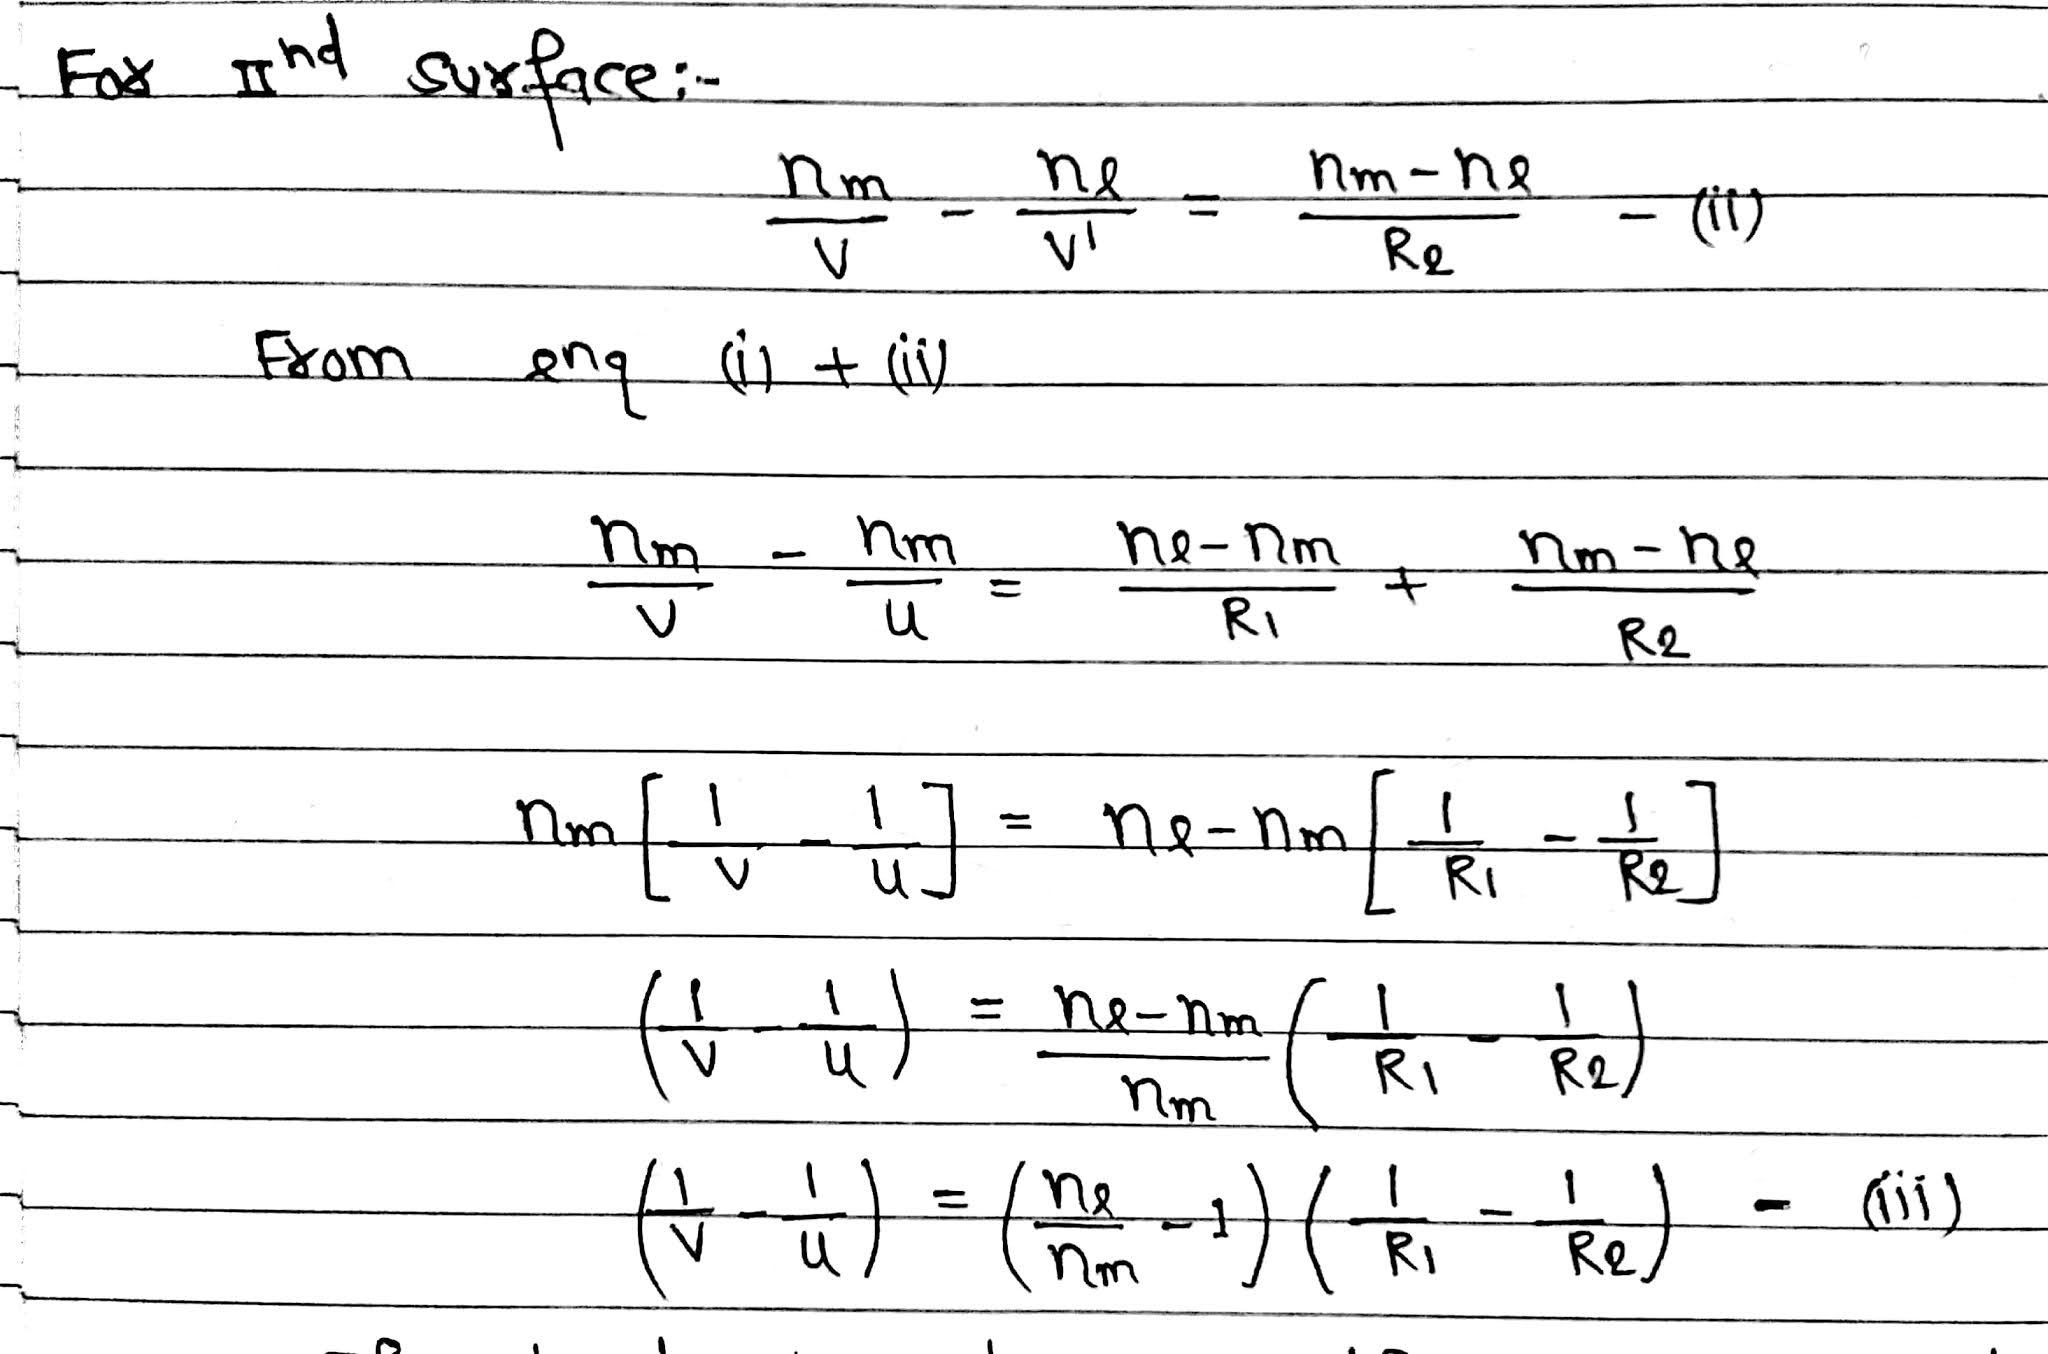 For IInd surface:-
nm/v - nl/v' = nm-nl/R2 - (ii)
From enq (i) + (ii)
nm/v - nm/u = nl-nm/R1 + nm-nl/R2
nm [1/v - 1/u] = nl-nm [1/R1 - 1/R2]
(1/v - 1/u) = nl-nm/nm (1/R1 - 1/R2)
(1/v - 1/u) = (nl/nm - 1) (1/R1 - 1/R2) - (iii)